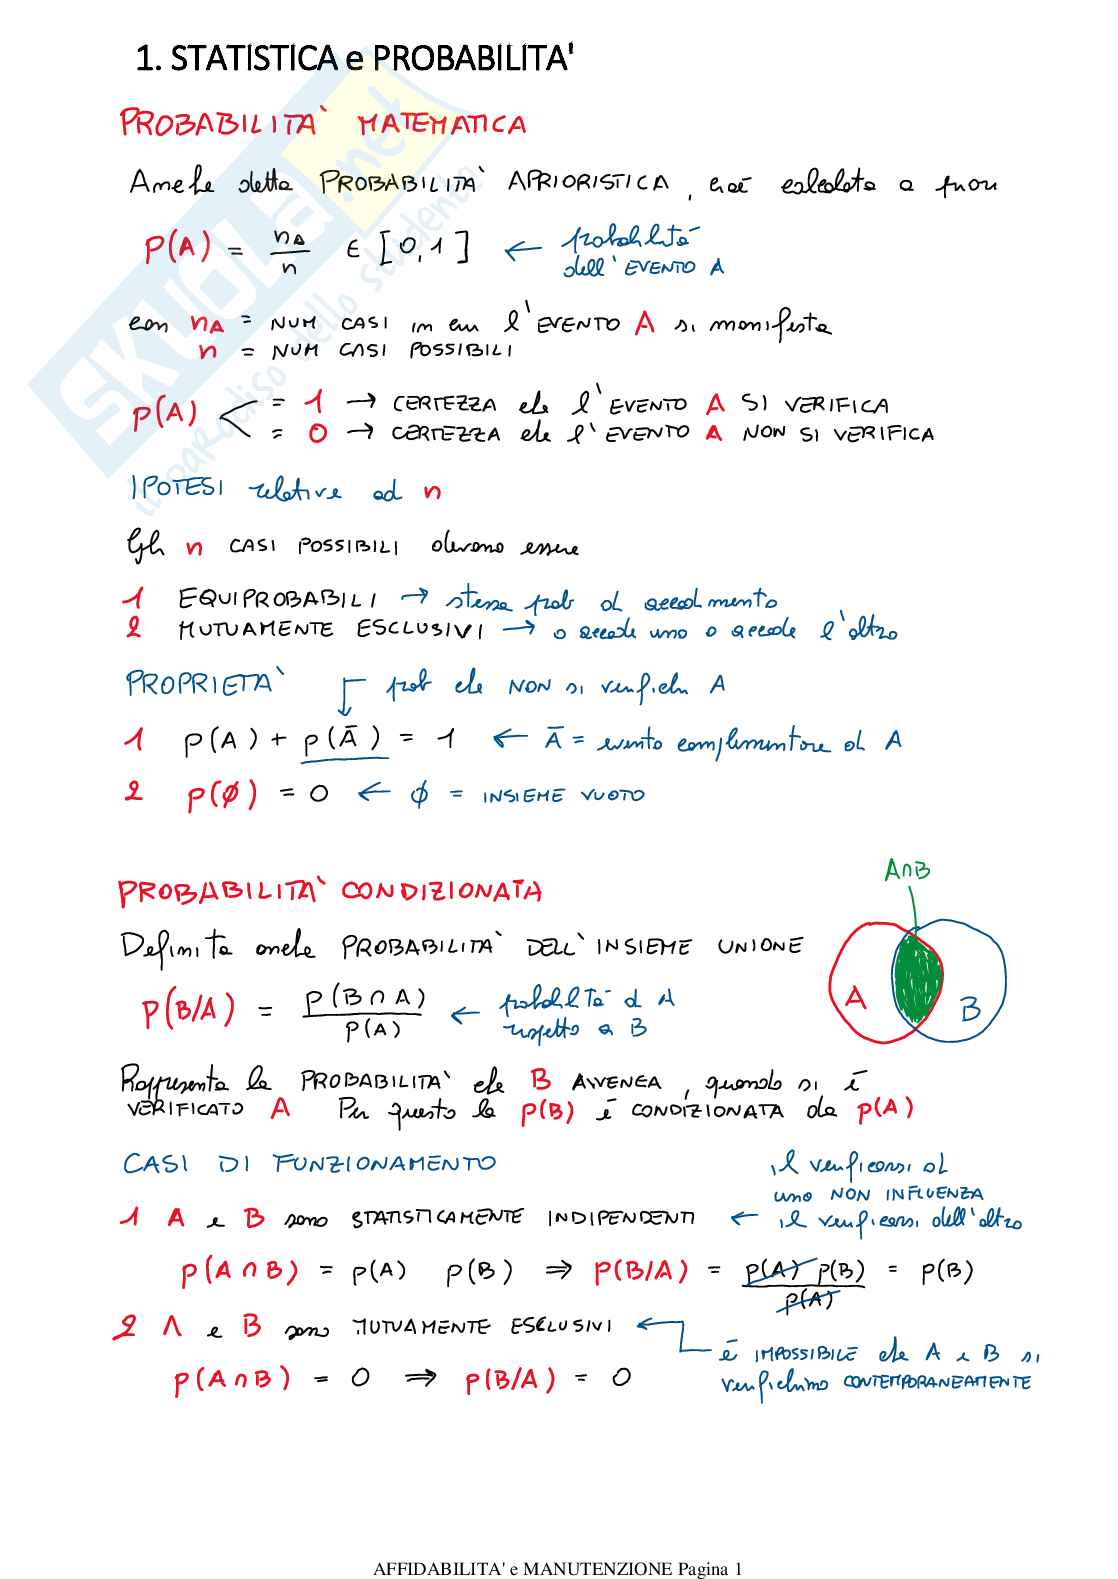 1. STATISTICA e PROBABILITA'
PROBABILITA` MATEMATICA
Anche detta PROBABILITA` APRIORISTICA, cioè calcolata a priori
P(A) = nA/n ∈ [0,1] ← probabilità dell'EVENTO A
con nA = NUM CASI in cui l'EVENTO A si manifesta
n = NUM CASI POSSIBILI
P(A) < = 1 → CERTEZZA che l'EVENTO A SI VERIFICA
= 0 → CERTEZZA che l'EVENTO A NON SI VERIFICA
IPOTESI relative ad n
Gli n CASI POSSIBILI devono essere
1 EQUIPROBABILI → stessa prob di accadimento
2 MUTUAMENTE ESCLUSIVI → o accade uno o accade l'altro
PROPRIETA` prob che NON si verifichi A
1 p(A) + p(Ā) = 1 ← Ā = evento complementare di A
2 p(ø) = 0 ← ø = INSIEME VUOTO
A∩B
PROBABILITA` CONDIZIONATA
Definita anche PROBABILITA` DELL'INSIEME UNIONE
A B
P(B/A) = P(B∩A)/P(A) ← probabilità di A rispetto a B
Rappresenta la PROBABILITA` che B AVVENGA, quando si è
VERIFICATO A Per questo la p(B) è CONDIZIONATA da p(A)
CASI DI FUNZIONAMENTO
il verificarsi di
uno NON INFLUENZA
1 A e B sono STATISTICAMENTE INDIPENDENTI ← il verificarsi dell'altro
p(A∩B) = p(A) p(B) ⇒ P(B/A) = p(A) p(B)/p(A) = p(B)
2 A e B sono MUTUAMENTE ESCLUSIVI ←
è IMPOSSIBILE che A e B si
p(A∩B) = 0 ⇒ p(B/A) = 0
verifichino CONTEMPORANEAMENTE
AFFIDABILITA' e MANUTENZIONE Pagina 1
SKUOLA.net
il paradiso dello studente